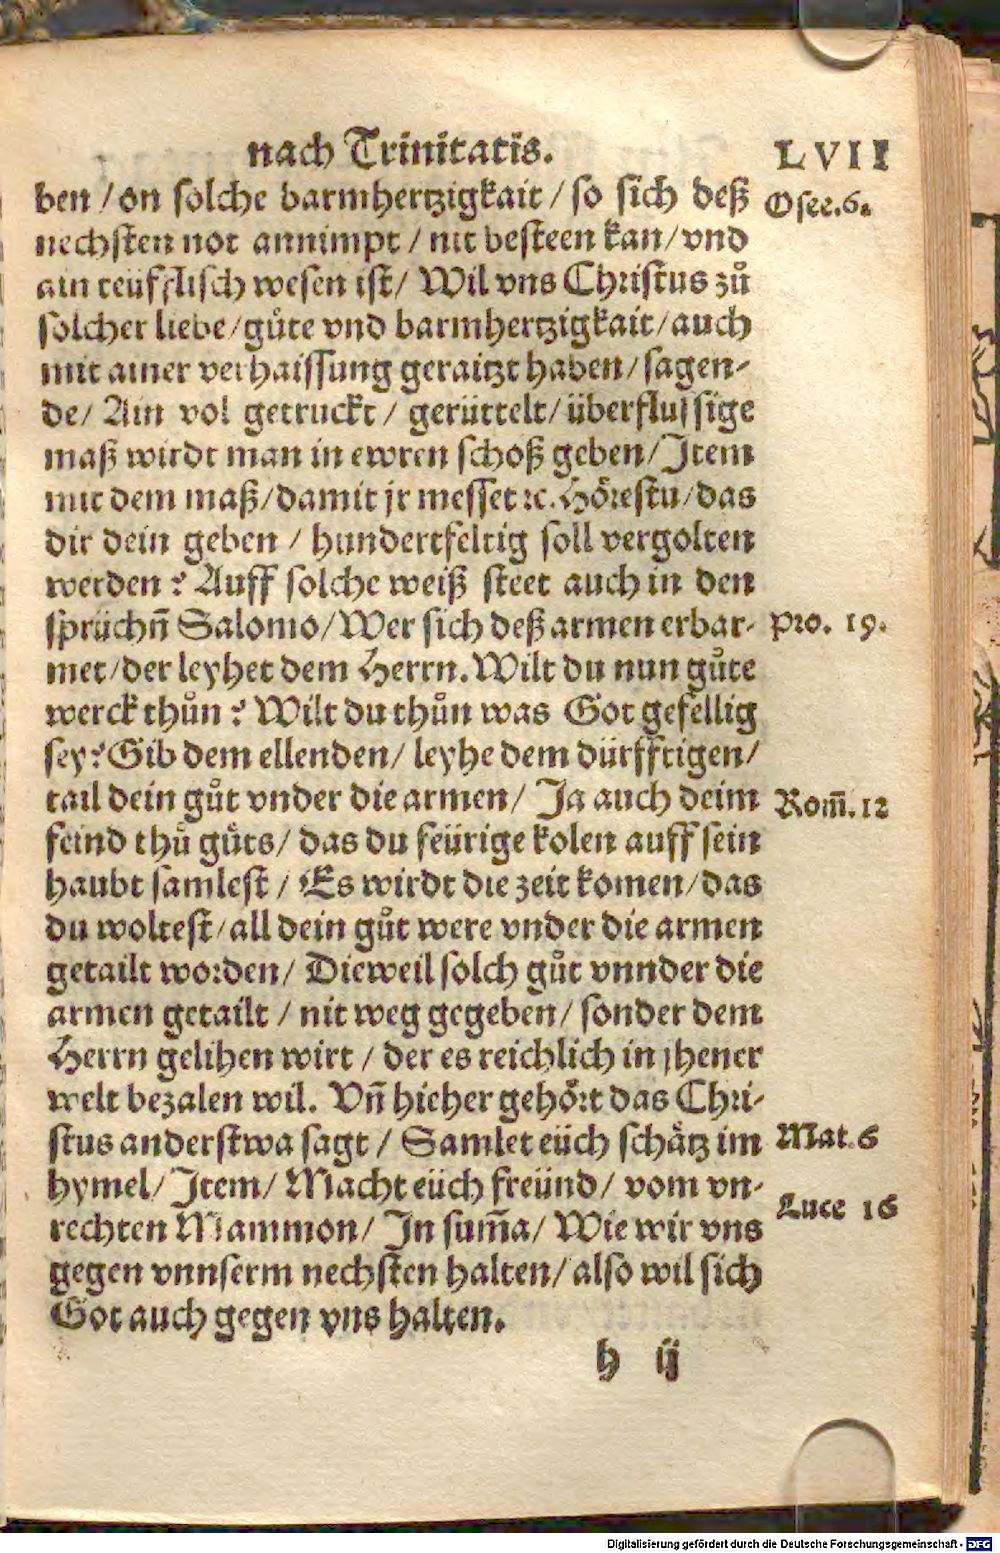 nach Trinitatis. LVII
ben / on solche barmhertzigkait / so sich deß Osee.6.
nechsten not annimpt / nit besteen kan / vnd
ain teüfflisch wesen ist / Wil vns Christus zů
solcher liebe / gůte vnd barmhertzigkait / auch
mit ainer verhaissung geraitzt haben / sagen-
de / Ain vol getruckt / gerüttelt / überflussige
maß wirdt man in ewren schoß geben / Item
mit dem maß / damit jr messet ꝛc. Hörestu / das
dir dein geben / hundertfeltig soll vergolten
werden? Auff solche weiß steet auch in den
sprüchn̄ Salomo / Wer sich deß armen erbar- Pro. 19.
met / der leyhet dem Herrn. Wilt du nun gůte
werck thůn? Wilt du thůn was Got gefellig
sey? Gib dem ellenden / leyhe dem dürfftigen /
tail dein gůt vnder die armen / Ja auch deim Rom̄.12
feind thů gůts / das du feürige kolen auff sein
haubt samlest / Es wirdt die zeit komen / das
du woltest / all dein gůt were vnder die armen
getailt worden / Dieweil solch gůt vnnder die
armen getailt / nit weg gegeben / sonder dem
Herrn gelihen wirt / der es reichlich in jhener
welt bezalen wil. Vn̄ hieher gehört das Chri-
stus anderstwa sagt / Samlet eüch schätz im Mat.6
hymel / Item / Macht eüch freünd / vom vn-
rechten Mammon / In sum̄a / Wie wir vns Luce 16
gegen vnnserm nechsten halten / also wil sich
Got auch gegen vns halten.
h ij
Digitalisierung gefördert durch die Deutsche Forschungsgemeinschaft - DFG